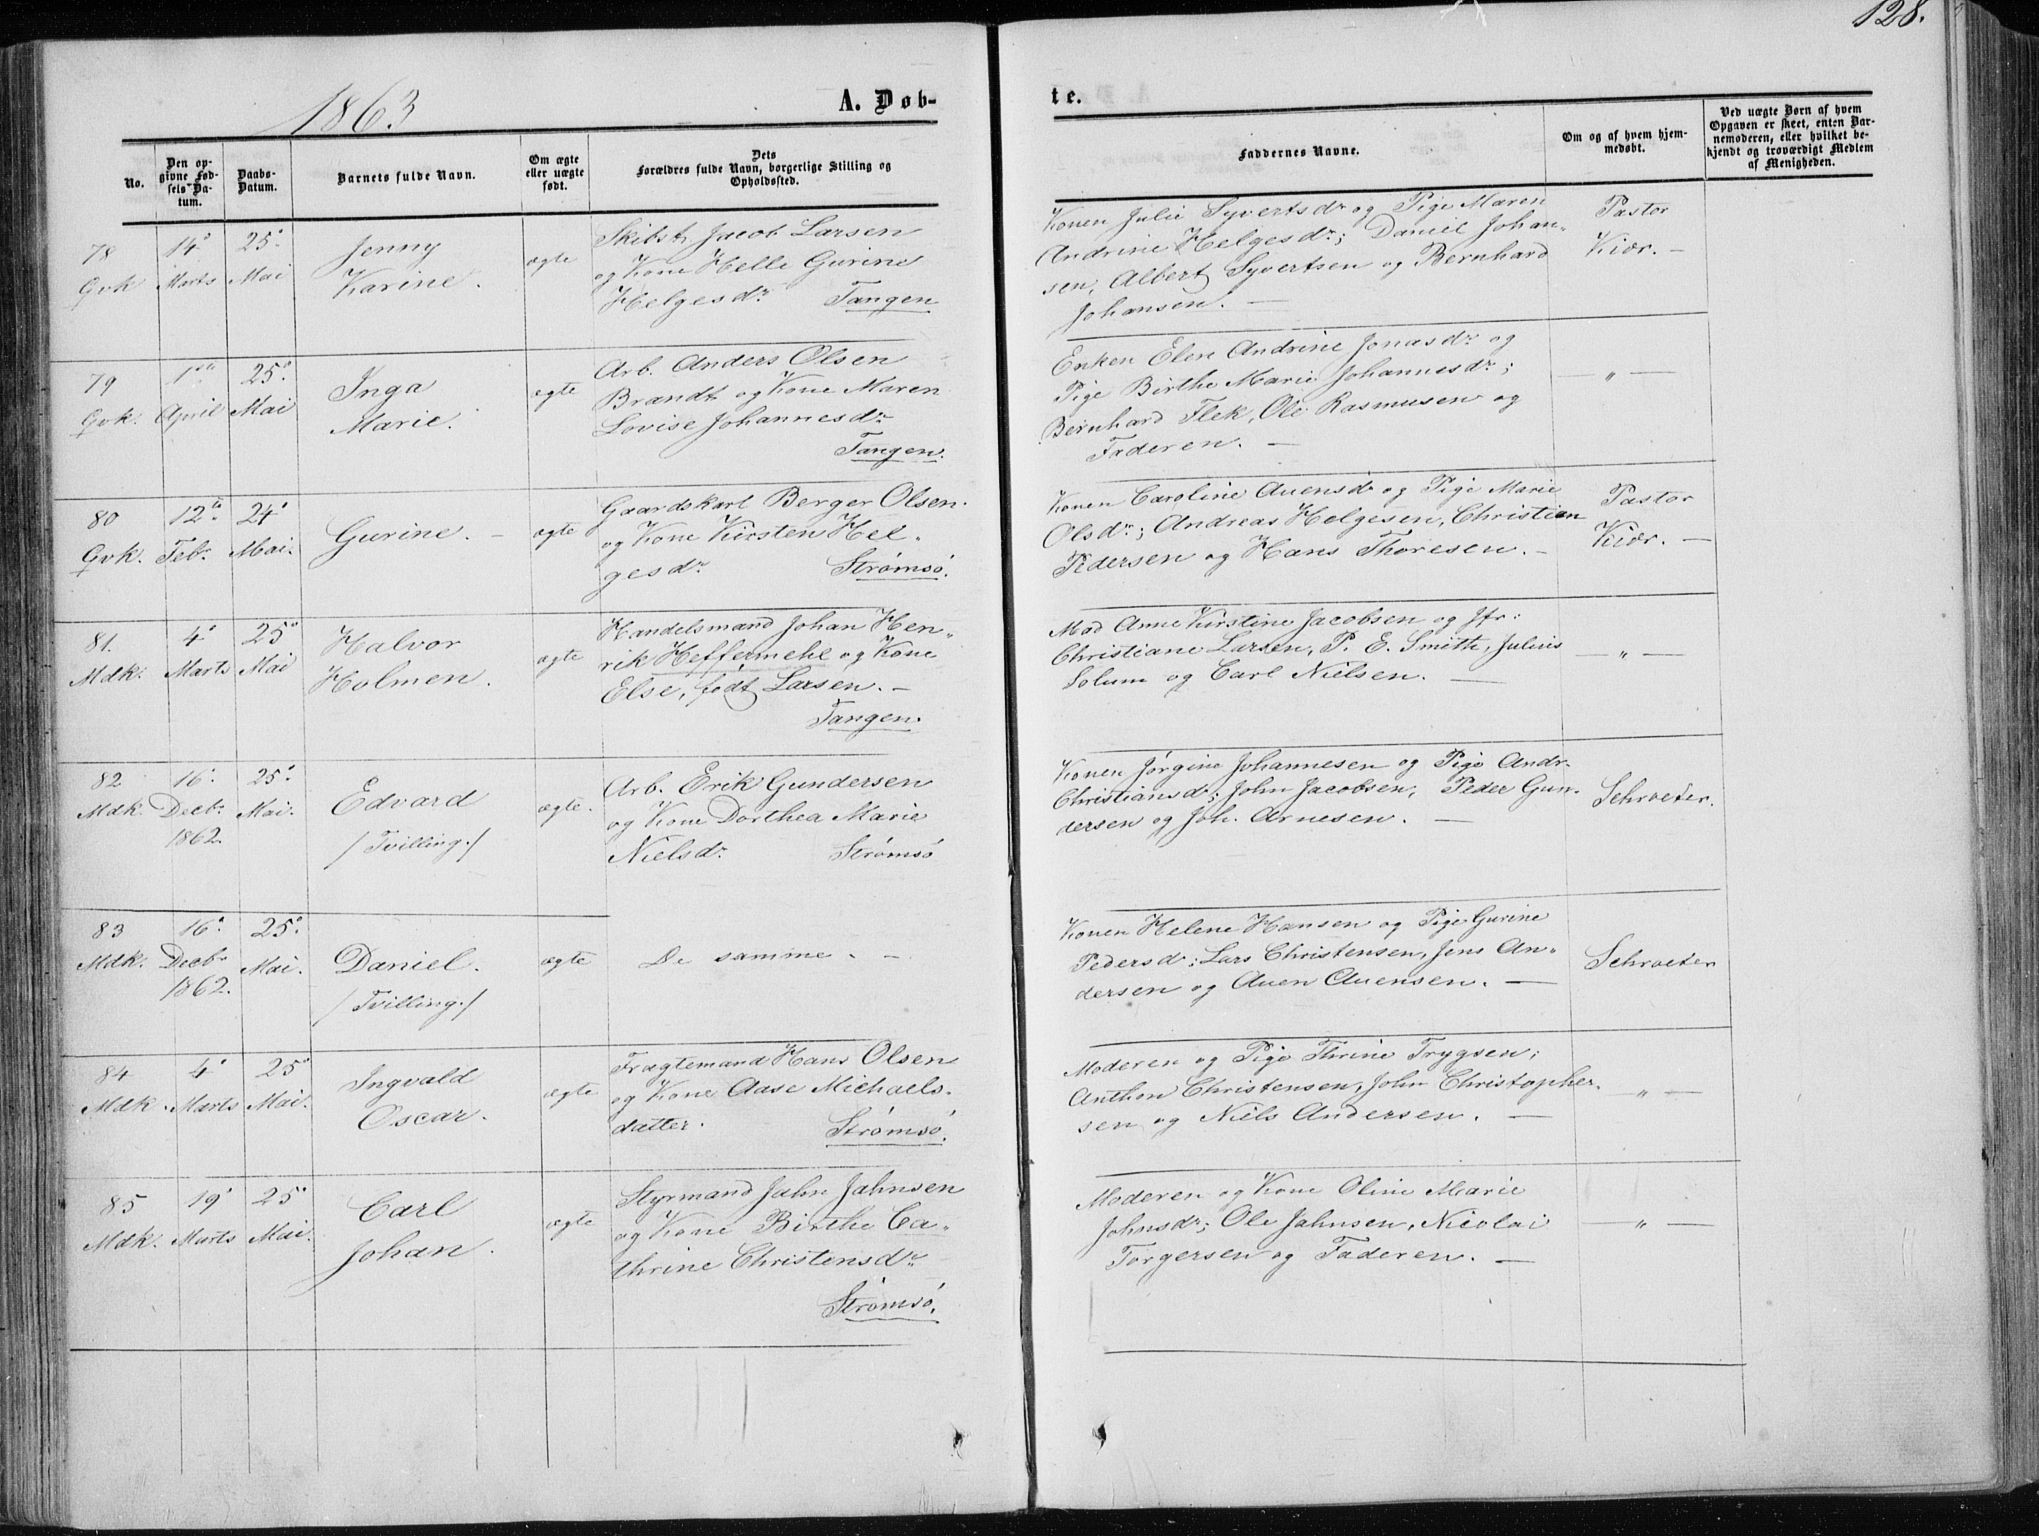 128.
1863
A. Døb-
te.
No.
Den op-
givne Fød-
sels-Da-
tum.
Daabs-
Datum.
Barnets fulde Navn.
Om ægte
eller uægte
født.
Dets
Forældres fulde Navn, borgerlige Stilling og
Opholdssted.
Faddernes Navne.
Om og af hvem hjem-
medøbt.
Ved uægte Børn af hvem
Opgaven er skeet, enten Bar-
nemoderen, eller hvilket be-
kjendt og troværdigt Medlem
af Menigheden.
78
Qvk
14de
Marts
25de
Mai
Jenny
Karine.
ægte
Skibst. Jacob Larsen
og Kone Helle Gurine
Helgesdr. Tangen
Konen Julie Syvertsdr og Pige Maren
Andrine Helgesdr; Daniel Johan-
sen, Albert Syvertsen og Bernhard
Johansen. —
Pastor
Kiær. —
79
Qvk.
1ste
April
25de
Mai
Inga
Marie.
ægte
Arb. Anders Olsen
Brandt og Kone Maren
Lovise Johannesdr
Tangen.
Enken Elen Andrine Jonasdr og
Pige Birthe Marie Johannesdr;
Bernhard Flek, Ole Rasmusen og
Faderen. —
— " —
80
Qvk.
12te
Febr.
24de
Mai.
Gurine. —
ægte
Gaardskarl Berger Olsen
og Kone Kirsten Hel-
gesdr. Strømsø.
Konen Caroline Auensdr og Pige Marie
Olsdr; Andreas Helgesen, Christian
Pedersen og Hans Thoresen. —
Pastor
Kiær. —
81.
Mdk.
4de
Marts
25de
Mai
Halvor
Holmen.
ægte
Handelsmand Johan Hen-
rik Heffermehl og Kone
Else, født Larsen. —
Tangen.
Mad Anne Kirstine Jacobsen og Jfr:
Christiane Larsen, P. E. Smith, Julius
Solum og Carl Nielsen. —
— " —
82
Mdk.
16de
Decbr.
1862.
25de
Mai.
Edvard
/Tvilling./
ægte.
Arb. Erik Gundersen
og Kone Dorthea Marie
Nielsdr. Strømsø
Konen Jørgine Johannesen og Pige Andr.
Christiansdr; John Jacobsen, Peder Gun-
dersen og Joh. Arnesen. —
Schroeter.
83
Mdk.
16de
Decbr
1862.
25de
Mai.
Daniel.
/Tvilling./
ægte
De samme. —
Konen Helene Hansen og Pige Gurine
Pedersd; Lars Christensen, Jens An-
dersen og Auen Auensen. —
Schroeter
84
Mdk.
4de
Marts
25de
Mai.
Ingvald
Oscar.
ægte
Fragtemand Hans Olsen
og Kone Aase Michaels-
datter. Strømsø.
Moderen og Pige Thrine Trygsen;
Anthon Christensen, John Christopher-
sen og Niels Andersen. —
— " —
85
Mdk.
19de
Marts
25de
Mai.
Carl
Johan.
ægte
Styrmand Jahn Jahnsen
og Kone Birthe Ca-
thrine Christensdr
Strømsø.
Moderen og Kone Oline Marie
Johnsdr; Ole Jahnsen, Nicolai
Torgersen og Faderen. —
— " —